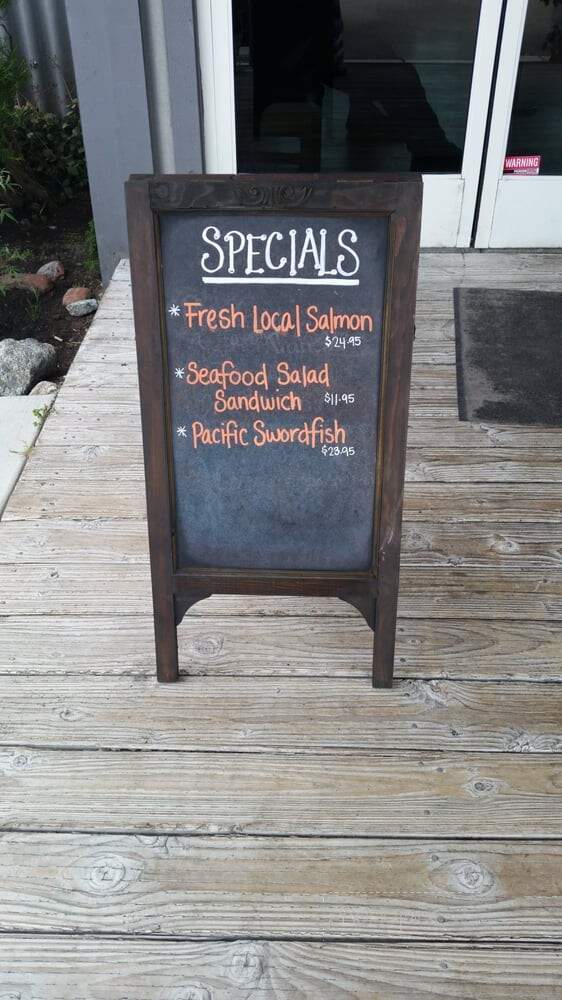 SPECIALS
* Fresh Local Salmon
$24.95
* Seafood Salad
Sandwich $11.95
* Pacific Swordfish
$23.95
WARNING